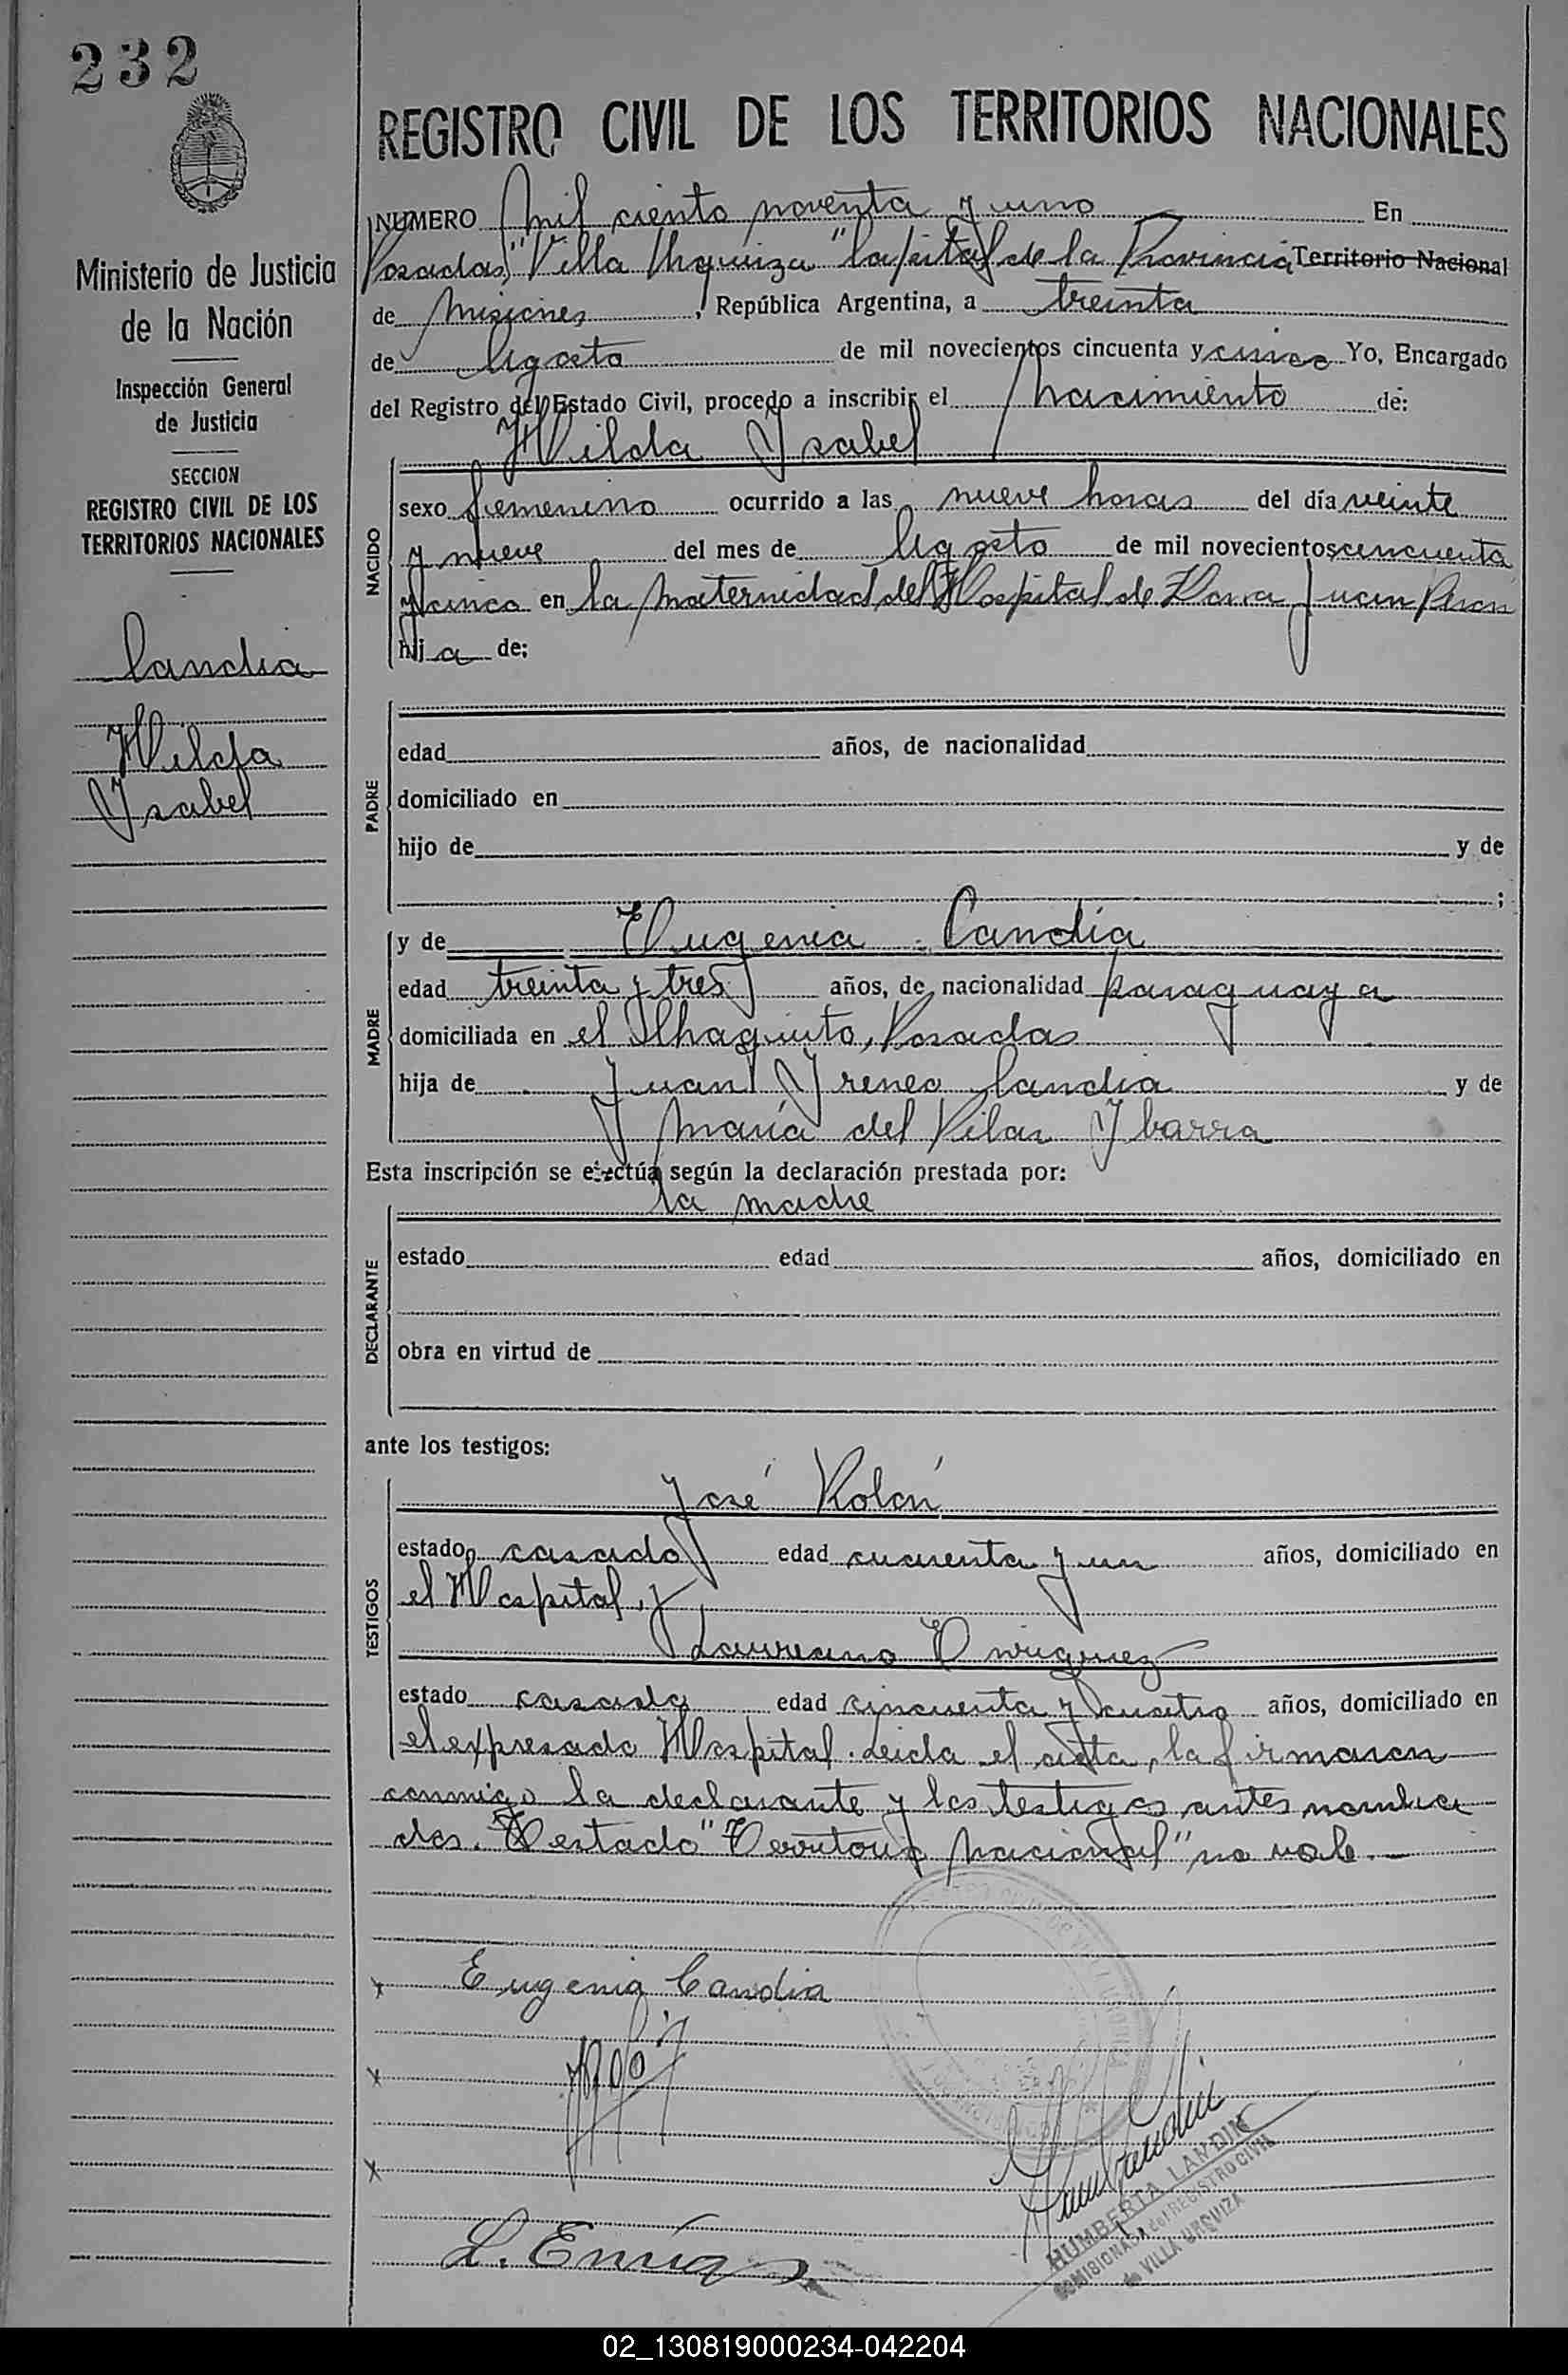 232
REGISTRO CIVIL DE LOS TERRITORIOS NACIONALES
Ministerio de Justicia
de la Nación
Inspección General
de Justicia
SECCION
REGISTRO CIVIL DE LOS
TERRITORIOS NACIONALES
Candia
Hilda
Ysabel
NUMERO Mil ciento noventa y uno En
Posadas, "Villa Urquiza" Capital de la Provincia Territorio Nacional
de Misiones, República Argentina, a treinta
de Agosto de mil novecientos cincuenta y cinco Yo, Encargado
del Registro del Estado Civil, procedo a inscribir el nacimiento de:
Hilda Ysabel
NACIDO
sexo femenino ocurrido a las nueve horas del día veinte
y nueve del mes de Agosto de mil novecientos cincuenta
y cinco en la Maternidad del Hospital de Juan Peron
hija de:
PADRE
edad años, de nacionalidad
domiciliado en
hijo de y de
;
MADRE
y de Eugenia Candia
edad treinta y tres años, de nacionalidad paraguaya
domiciliada en el Posadas
hija de Juan Yreneo Candia y de
María del Pilar Ybarra
Esta inscripción se efectúa según la declaración prestada por:
la madre
DECLARANTE
estado edad años, domiciliado en
obra en virtud de
ante los testigos:
TESTIGOS
José Rolón
estado casado edad cuarenta y un años, domiciliado en
el Hospital, y
Laureano Enriquez
estado casado edad cincuenta y cuatro años, domiciliado en
el expresado Hospital. Leida el acta, la firmaron
conmigo la declarante y los testigos antes nombra
dos. Testado "Territorio Nacional" no vale.—
x Eugenia Candia
x
x
L. Enriq
HUMBERTA LANDIN
COMISIONADA del REGISTRO CIVIL
de VILLA URQUIZA
02_130819000234-042204